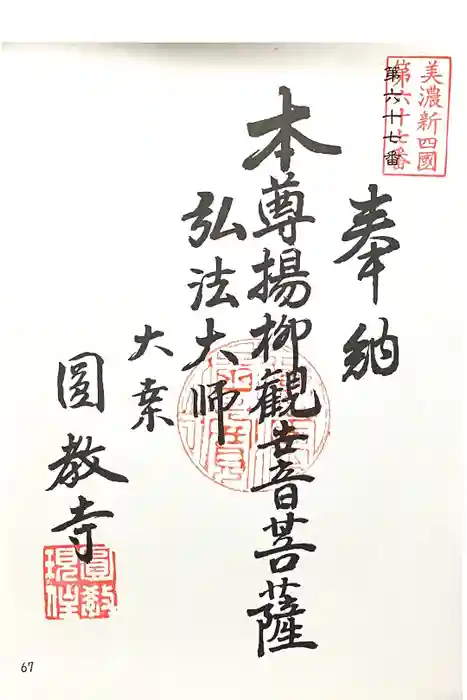 美濃新四國
第六十七番
第六十七番
奉納
本尊揚柳觀世音菩薩
弘法大师
大桒
圓教寺
67